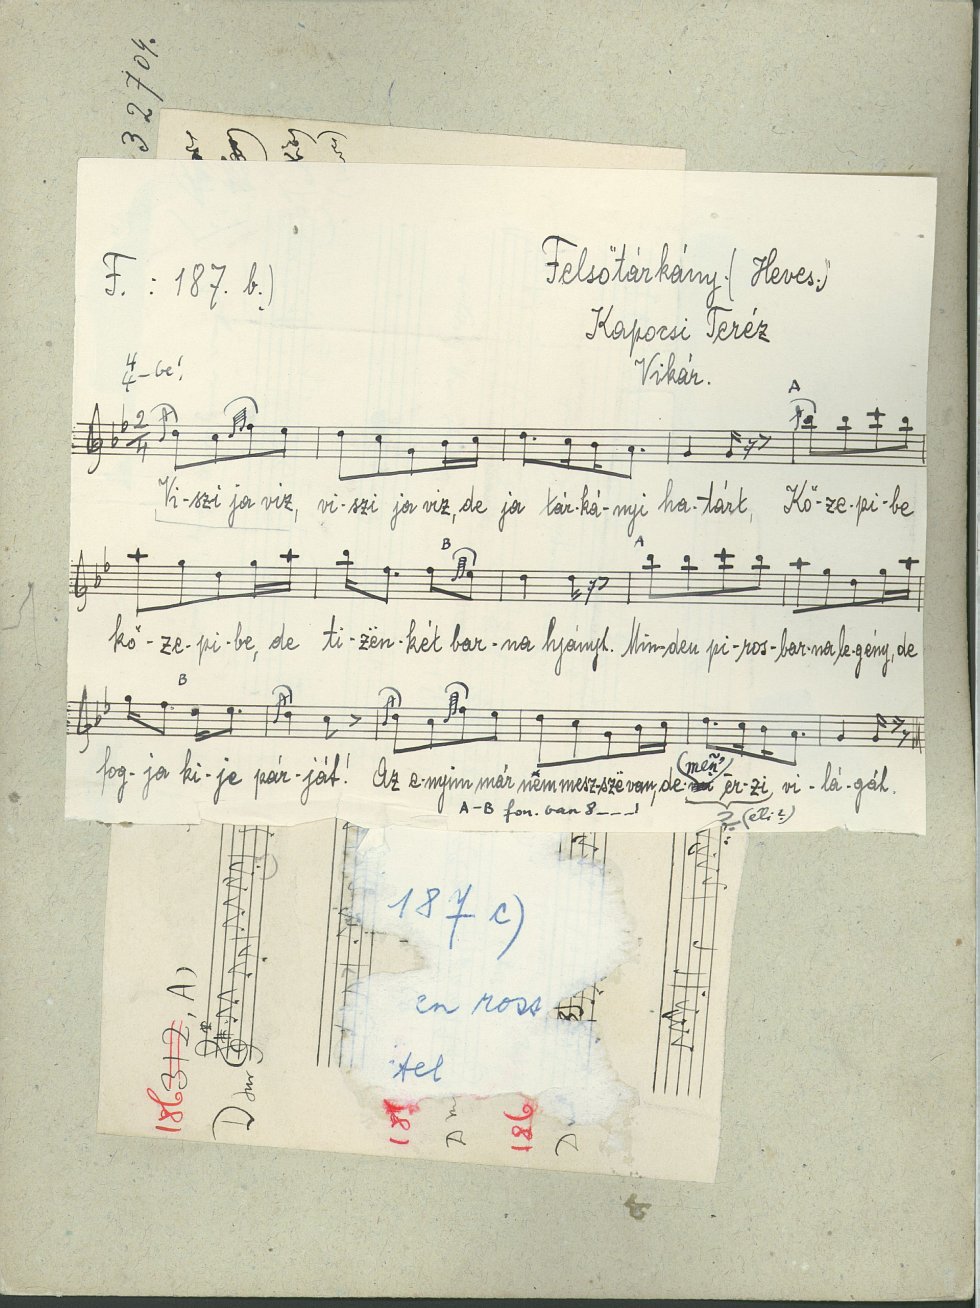 32704.
F. : 187. b.)
Felsőtárkány. (Heves.)
Kapocsi Teréz
Vikár.
4/4 - be!
A
2/4
Vi-szi ja viz, vi-szi ja viz, de ja tár-ká-nyi ha-tárt, Kö-ze-pi-be
B A
kö-ze-pi-be, de ti-zën-két bar-na hjányt. Min-den pi-ros-bar-na le-gény, de
B
fog-ja ki-je pár-ját! Az e-nyim már nëm mesz-szë van, de (mëñ) ēr-zi vi-lá-gát.
A-B fon. van 8---!
? (eli?)
187 c)
en ross
tel
186 312, A)
D dur
186
D